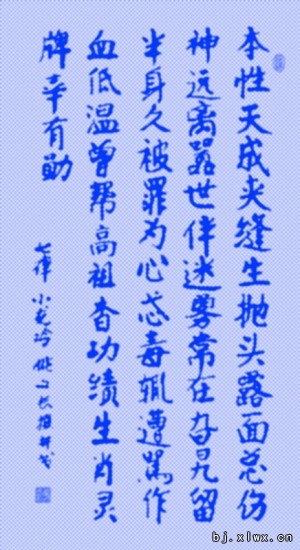 本性天成夹缝生抛头露面总伤
神远离嚣世伴迷雾常在旮旯留
半身久被罪为心忒毒辄遭骂作
血低温曾帮高祖杳功绩生肖灵
牌幸有勋
七律 小龙吟
bj.xlwx.cn